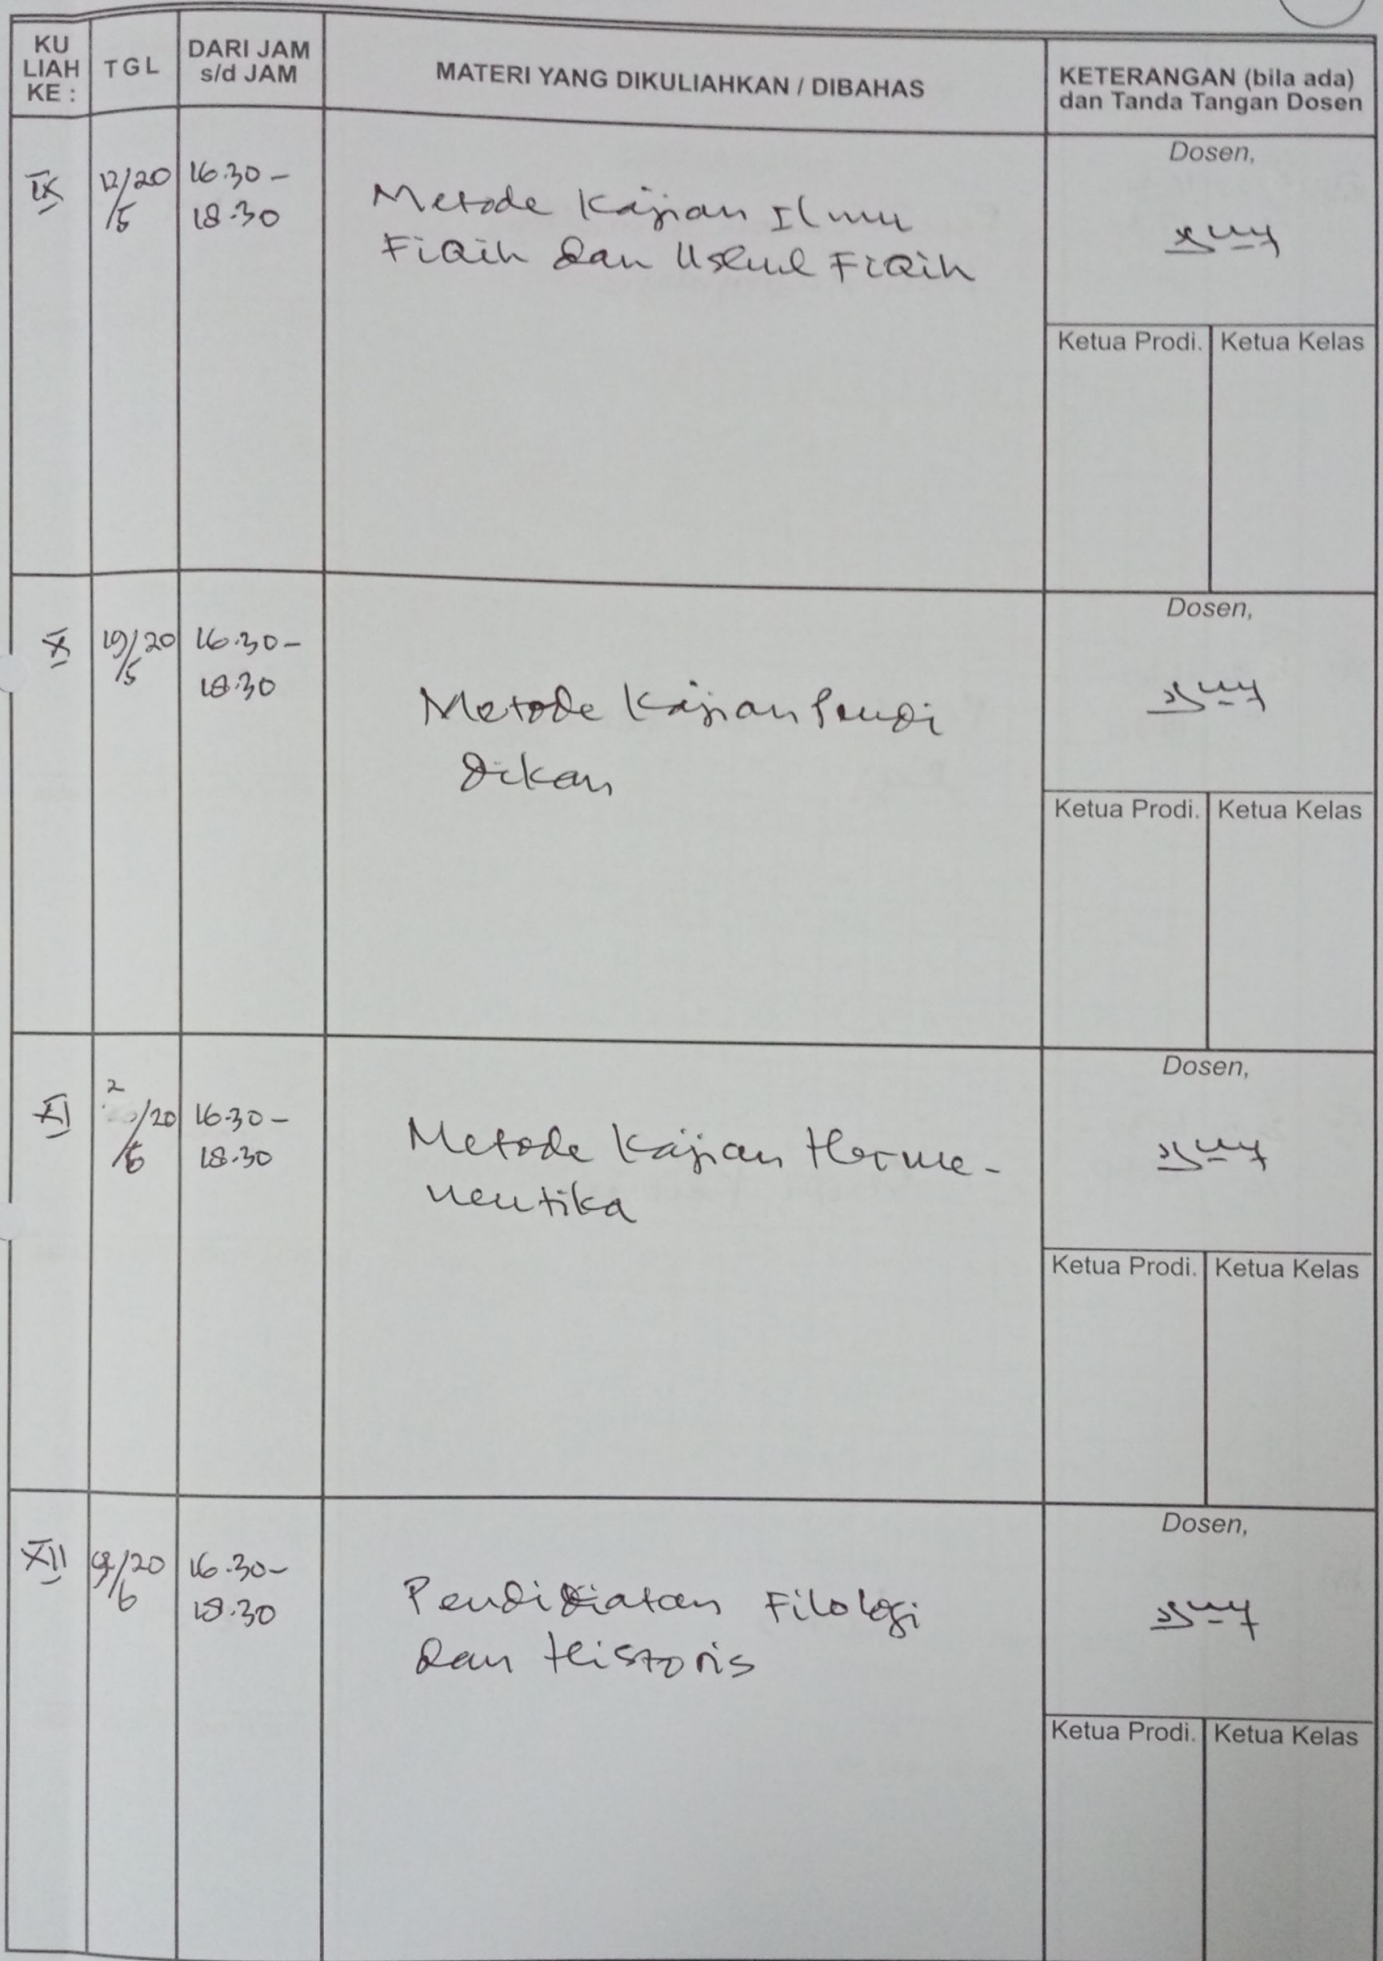 KU
LIAH
KE :
TGL
DARI JAM
s/d JAM
MATERI YANG DIKULIAHKAN / DIBAHAS
KETERANGAN (bila ada)
dan Tanda Tangan Dosen
IX
12/20
/5
16.30 -
18.30
Metode Kajian Ilmu
Fiqih dan Ushul Fiqih
Dosen,
Ketua Prodi.
Ketua Kelas
X
19/20
/5
16.30 -
18.30
Metode Kajian Pendi
dikan
Dosen,
Ketua Prodi.
Ketua Kelas
XI
2
/20
/6
16.30 -
18.30
Metode Kajian Herme-
neutika
Dosen,
Ketua Prodi.
Ketua Kelas
XII
9/20
/6
16.30 -
18.30
Filologi
dan Historis
Dosen,
Ketua Prodi.
Ketua Kelas